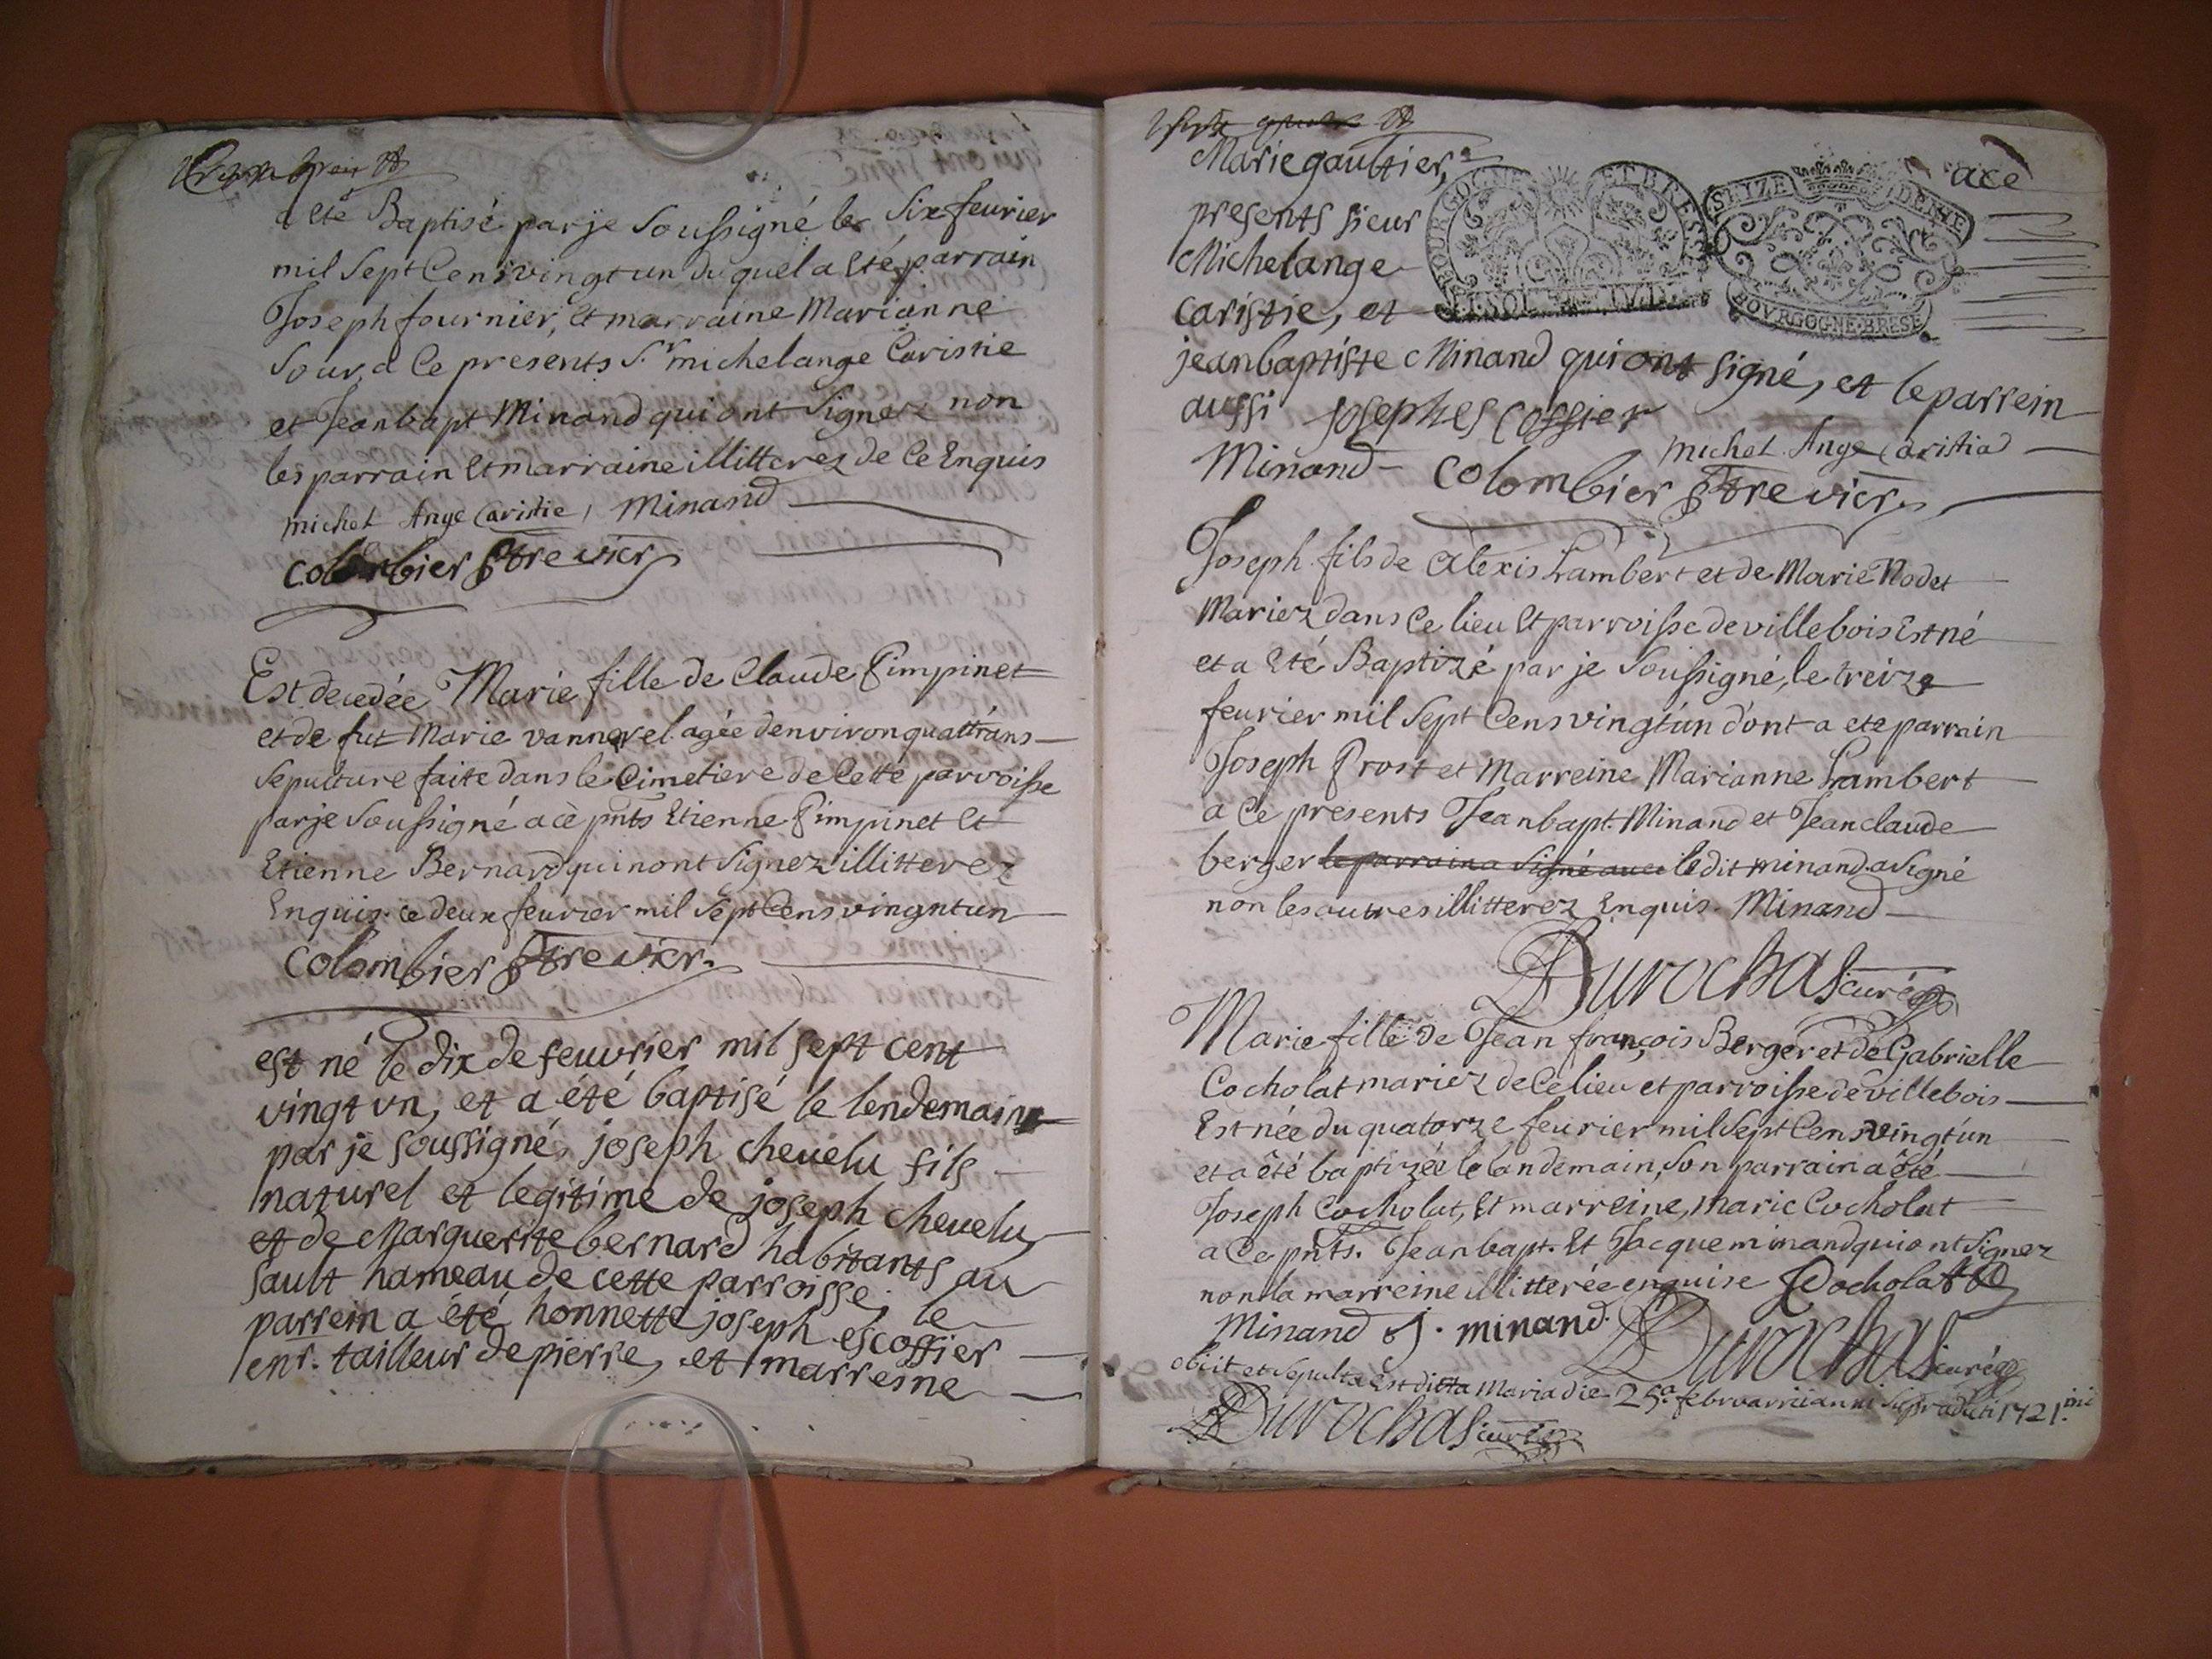 a eté Baptisé par je Soussigné les Six feurier
mil Sept Cens vingt un du quel a Eté parrain
Joseph fournier, Et marraine Marianne
Sourd a Ce présents S.r michelange Caristie
et Jean bapt Minand qui ont Signez non
les parrain Et marraine illitterez de Ce Enquis
michel Ange Caristie, Minand
Colombier ptre vicr
Est decedée Marie fille de Claude Pimpinet
et de fut Marie vannerel agée d'environ quattrans
Sepulture faite dans le Cimetiere de Cette parroisse
par je Soussigné a cè pnts Etienne Pimpinet Et
Etienne Bernard qui n'ont Signez illitterez
Enquis ce deux feurier mil Sept Cens vingnt un
Colombier ptre vicr.
est né le dix de feuvrier mil sept cent
vingt vn, et a été baptisé le lendemain
par je soussigné, joseph cheuelu fils
naturel et legitime de joseph cheuelu
et de Marguerite bernard habitants au
sault hameau de cette parroisse, le
parrein a été honnette joseph escoffier
enr. tailleur de pierre, et marreine
Marie gaultier, ace
presents sieur
Michelange
caristie, et
BOURGOGNE ET BRESSE
SEIZE DENIE
BOVRGOGNE·BRESE
jean baptiste Minand qui ont signé, et le parrein
aussi joseph escossier
michel Ange Caristia
Minand Colombier ptre vicr.
Joseph fils de Alexis Lambert et de Marie Nodet
Mariez dans Ce lieu Et parroisse de villebois Est né
et a Eté Baptizé par je Soussigné, le treize
feurier mil Sept Cens vingt un d'ont a ete parrain
Joseph Prost et Marreine Marianne Lambert
a Ce presents Jean bapt. Minand et Jean claude
berger le parrain a Signé avec le dit minand a Signé
non les autres illitterez Enquis. Minand
Durochas curé
Marie fille de Jean françois Berger et de Gabrielle
Cocholat mariez de Ce lieu et parroisse de villebois
Est née du quatorze feurier mil Sept Cens vingt un
et a êté baptizée le landemain, Son parrain a êté
Joseph Cocholat, Et marreine, Marie Cocholat
a Ce pnts. Jean bapt. Et Jacque minand qui ont Signez
non la marreine illitterée enquise Cocholat
Minand J. minand.
Durochas curé
obiit et Sepulta Est ditta Maria die 25.a februarrii anni Supradicti 1721.mi
Durochas curé